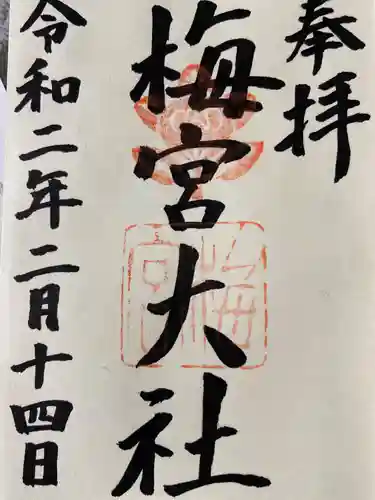 奉拝
梅宮大社
令和二年二月十四日